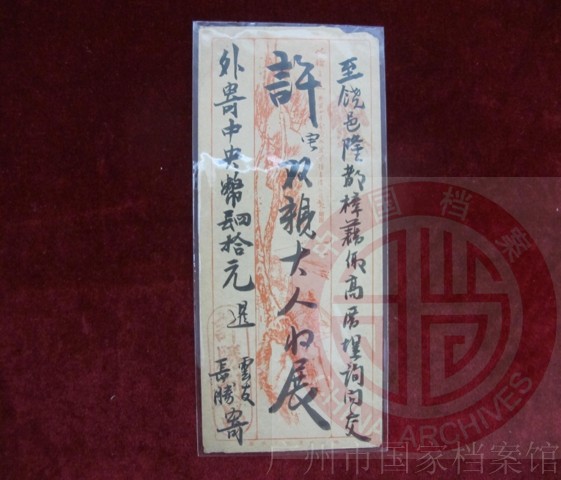 至饒邑隆都樟藉鄉高厝埕詢問交
許宅双親大人收展
外寄中央幣四拾元
暹
長勝寄
中国档案
ARCHIVES
广州市国家档案馆